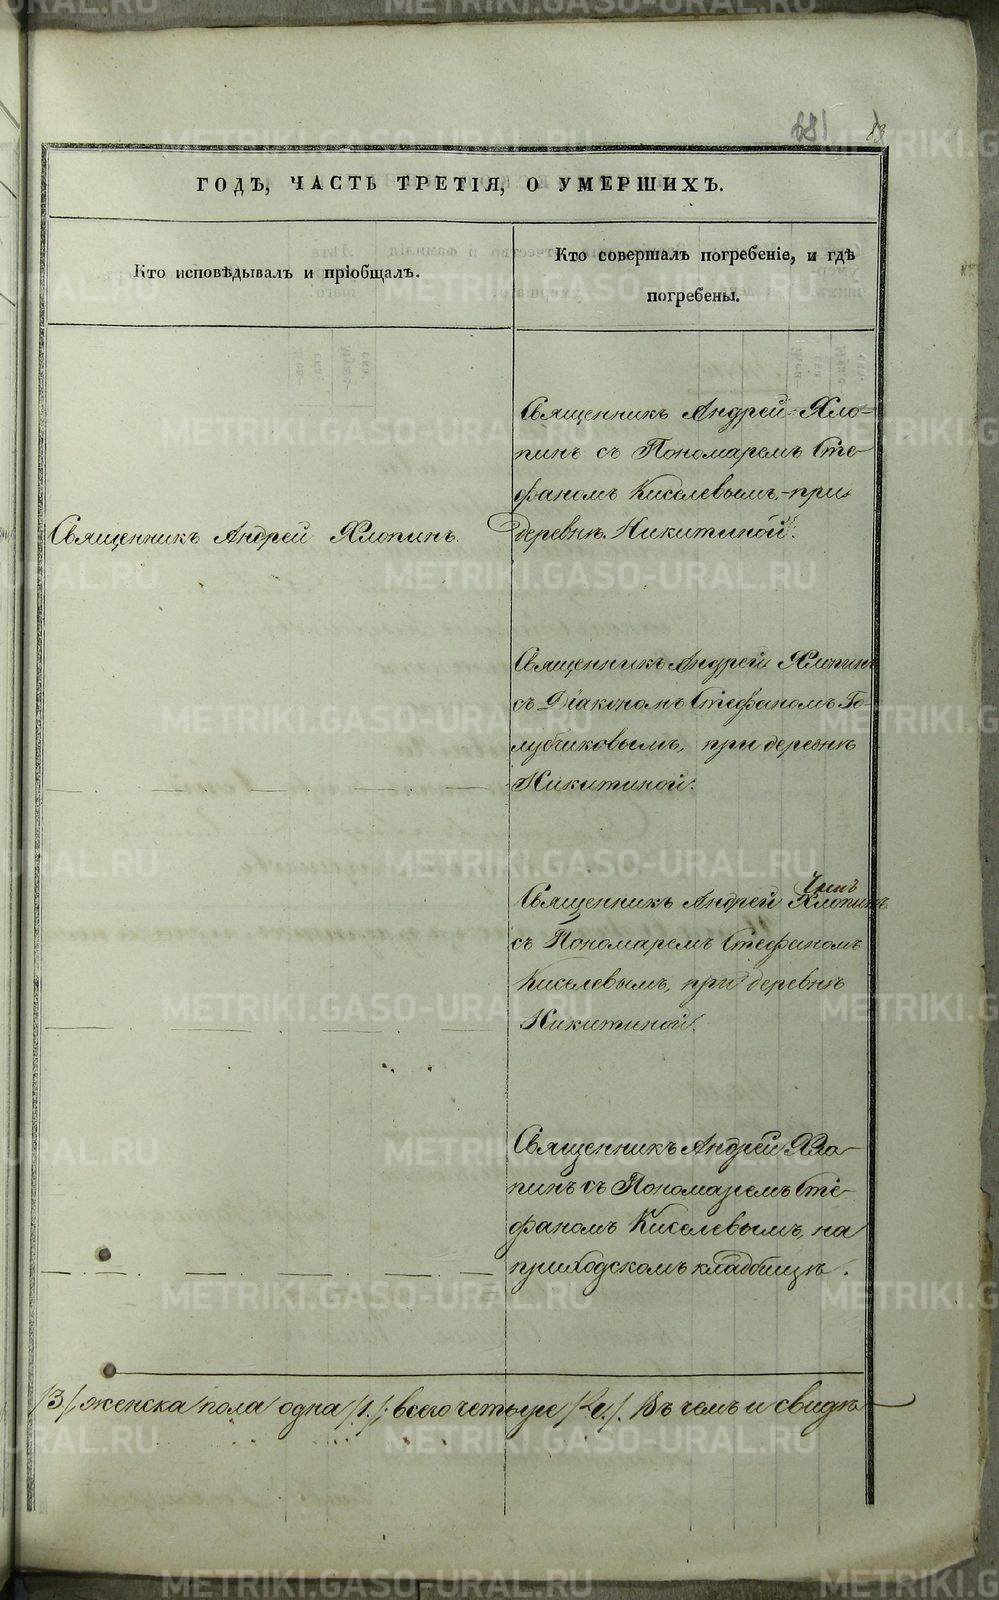 881
83
ГОДЪ, ЧАСТЬ ТРЕТІЯ, О УМЕРШИХЪ.
Кто исповѣдывалъ и пріобщалъ.
Кто совершалъ погребеніе, и гдѣ
погребены.
Священникъ Андрей Хло-
пинъ съ Пономаремъ Сте
фаномъ Киселевымъ, при
деревнѣ Никитиной.
Священникъ Андрей Хлопинъ.
Священникъ Андрей Хлопинъ
съ Діакономъ Стефаномъ Го-
лубчиковымъ, при деревнѣ
Никитиной.
Священникъ Андрей Хлопинъ
съ Пономаремъ Стефаномъ
Киселевымъ, при деревнѣ
Никитиной.
Священникъ Андрей Хло-
пинъ съ Пономаремъ Сте-
фаномъ Киселевымъ, на
приходскомъ кладбищѣ.
/3/ женска пола одна /1./: всего четыре /4./. Въ чемъ и свидѣ
METRIKI.GASO-URAL.RU